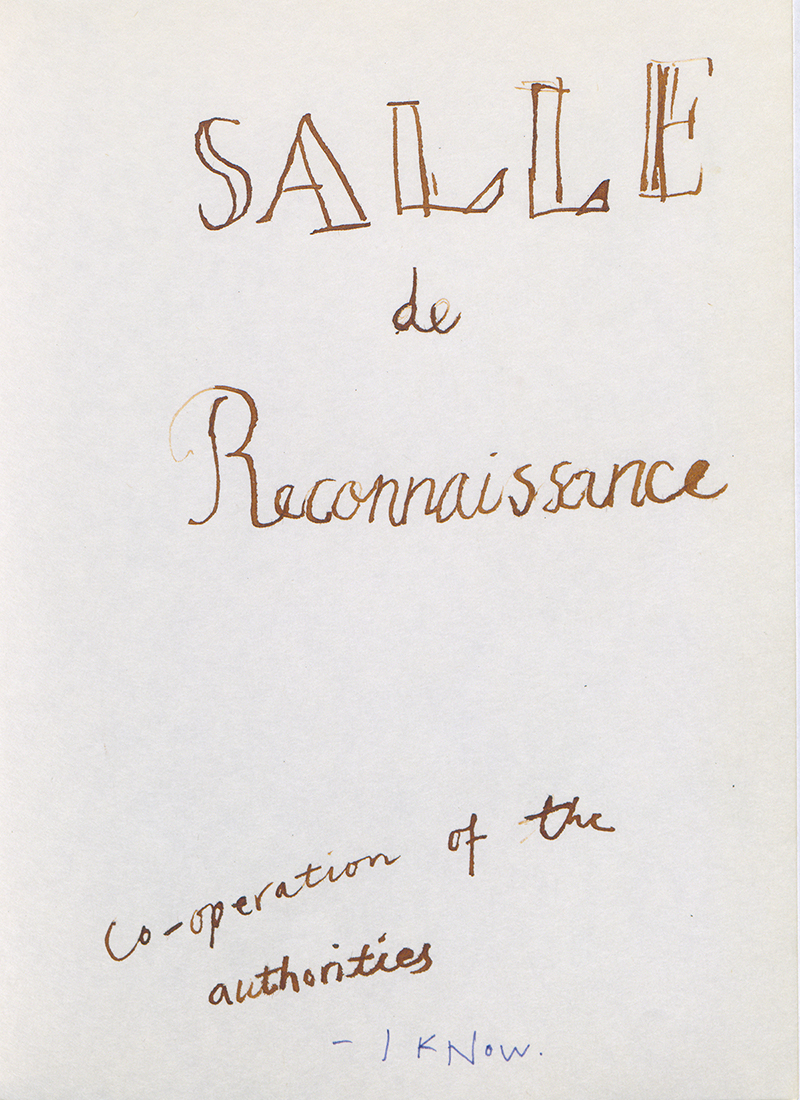 SALLE
de
Reconnaissance
Co-operation of the
authorities
- I KNOW.